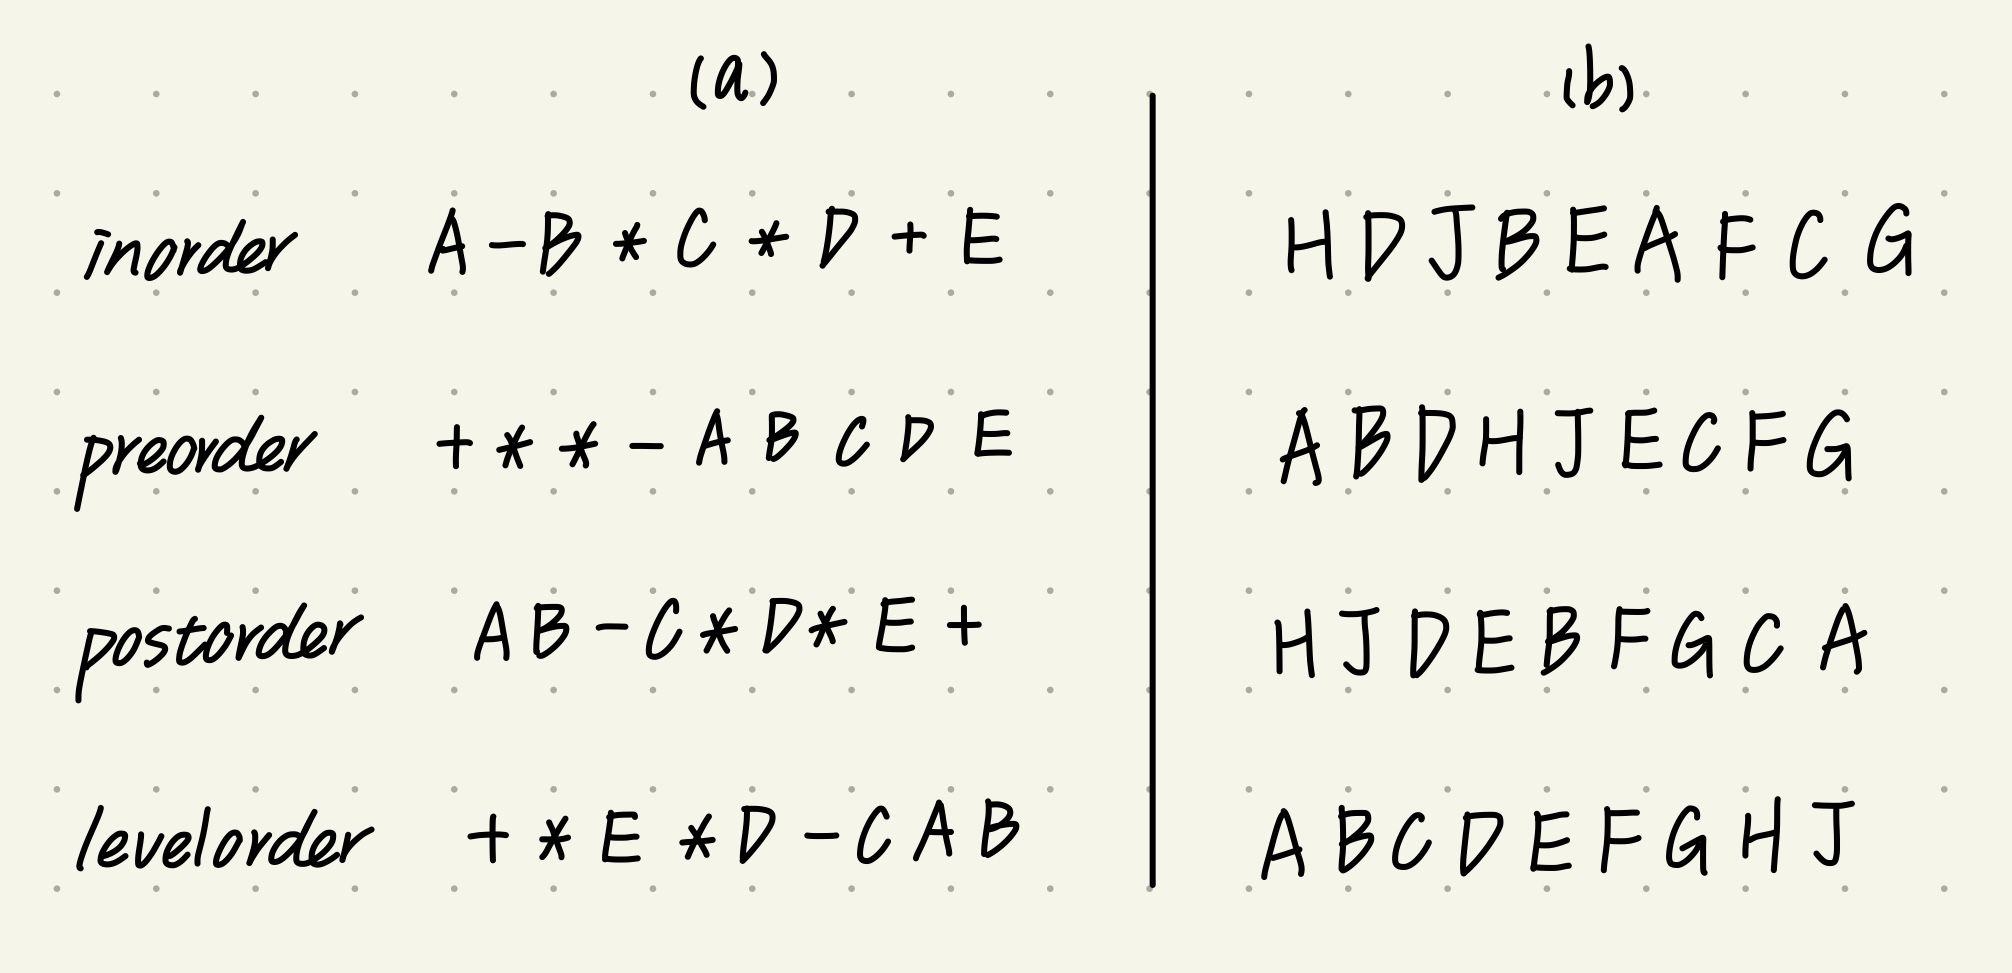 (a) (b)
inorder A - B * C * D + E H D J B E A F C G
preorder + * * - A B C D E A B D H J E C F G
postorder A B - C * D * E + H J D E B F G C A
levelorder + * E * D - C A B A B C D E F G H J